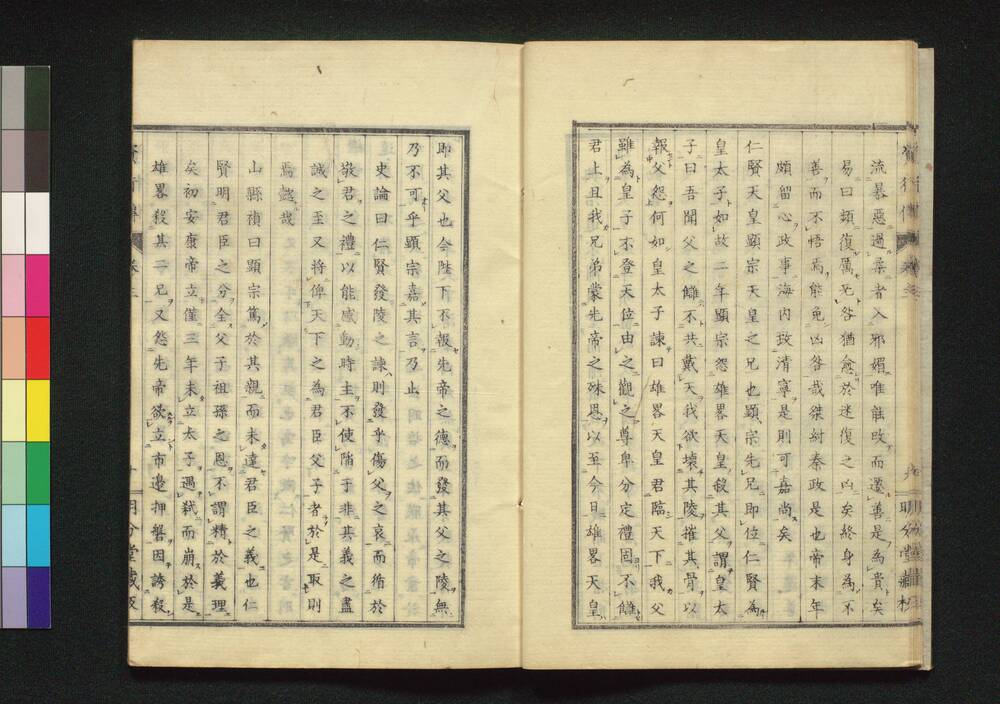 流暴惡過柔者入邪媚唯能改而遷善是為貴矣
易曰頻復厲无咎猶愈於迷復之凶矣終身為不
善而不悟焉能免凶咎哉桀紂秦政是也帝末年
頗留心政事海内玫清寧是則可嘉尚矣
仁賢天皇顕宗天皇之兄也顕宗先兄即位仁賢為
皇太子如故二年顕宗怨雄畧天皇殺其父謂皇太
子曰吾聞父之讎不共戴天我欲壊其陵摧其骨以
報父怨何如皇太子諫曰雄畧天皇君臨天下我父
雖為皇子不登天位由之觀之尊卑分定禮固不讎
君上且我兄弟蒙先帝之殊恩以至今日雄畧天皇
即其父也今陛下不報先帝之德而發其父之陵無
乃不可乎顕宗嘉其言乃止
史論曰仁賢發陵之諫則發乎傷父之哀而循於
敬君之禮以能感動時主不使陷于非其義之盡
誠之至又將俾天下之為君臣父子者於是取則
焉懿哉
山縣禎曰顕宗篤於其親而未達君臣之義也仁
賢明君臣之分全父子祖孫之恩不謂精於義理
矣初安康帝立僅三年未立太子遇弑而崩於是
雄畧殺其二兄又怨先帝欲立市邊押磐因誇殺